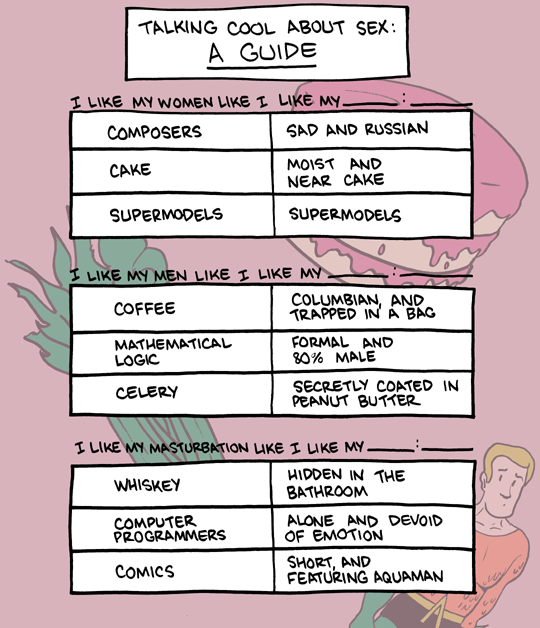 TALKING COOL ABOUT SEX:
A GUIDE
I LIKE MY WOMEN LIKE I LIKE MY ______:______
COMPOSERS
SAD AND RUSSIAN
CAKE
MOIST AND
NEAR CAKE
SUPERMODELS
SUPERMODELS
I LIKE MY MEN LIKE I LIKE MY ______:______
COFFEE
COLUMBIAN, AND
TRAPPED IN A BAG
MATHEMATICAL
LOGIC
FORMAL AND
80% MALE
CELERY
SECRETLY COATED IN
PEANUT BUTTER
I LIKE MY MASTURBATION LIKE I LIKE MY ______:______
WHISKEY
HIDDEN IN THE
BATHROOM
COMPUTER
PROGRAMMERS
ALONE AND DEVOID
OF EMOTION
COMICS
SHORT, AND
FEATURING AQUAMAN